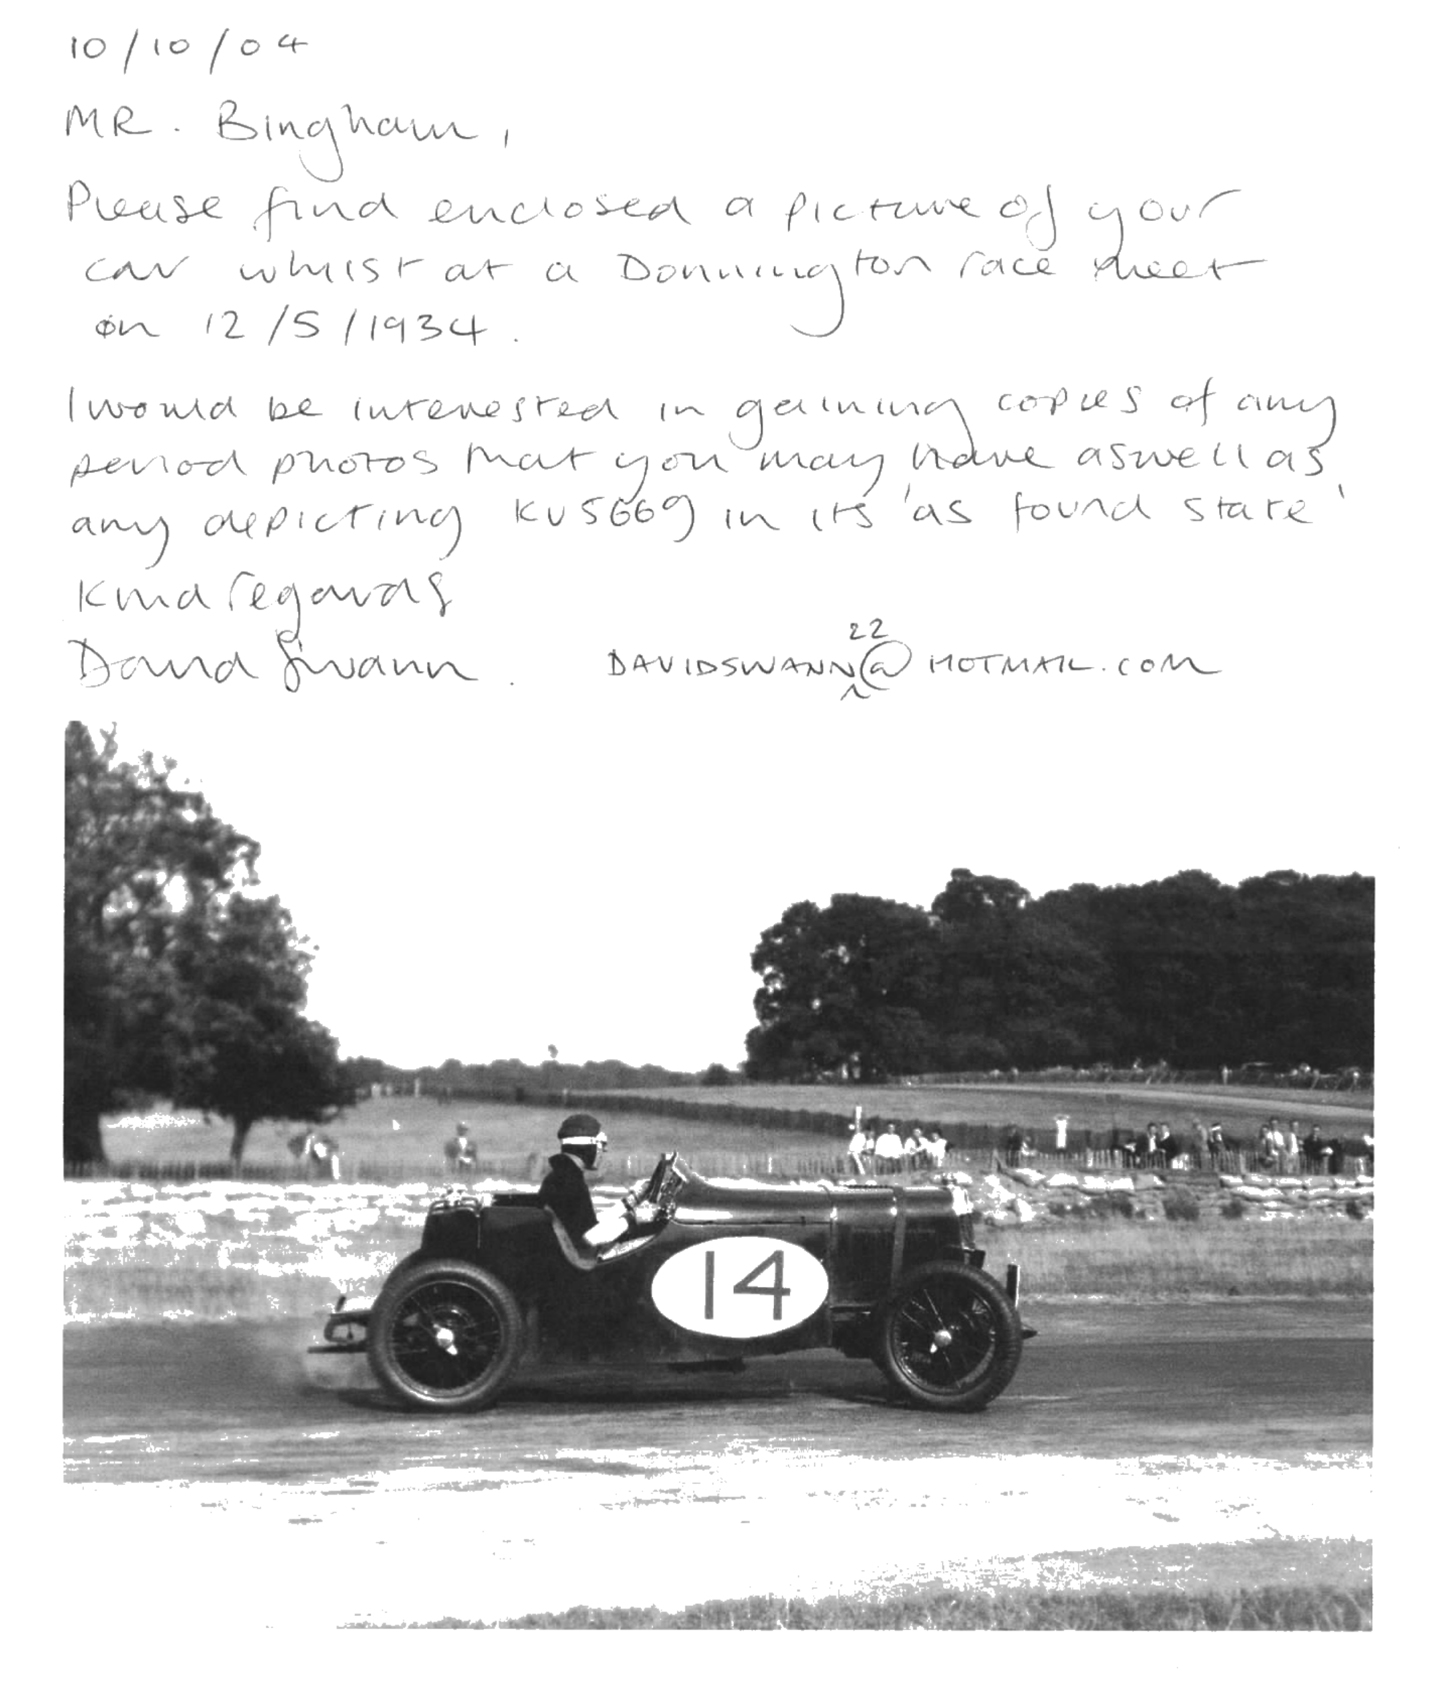 10/10/04
MR. Bingham,
Please find enclosed a picture of your
car whilst at a Donnington race meet
on 12/5/1934.
I would be interested in gaining copies of any
period photos that you may have aswell as
any depicting KV5669 in its 'as found state'
Kind regards
David Swann. DAVIDSWANN22@HOTMAIL.COM
14